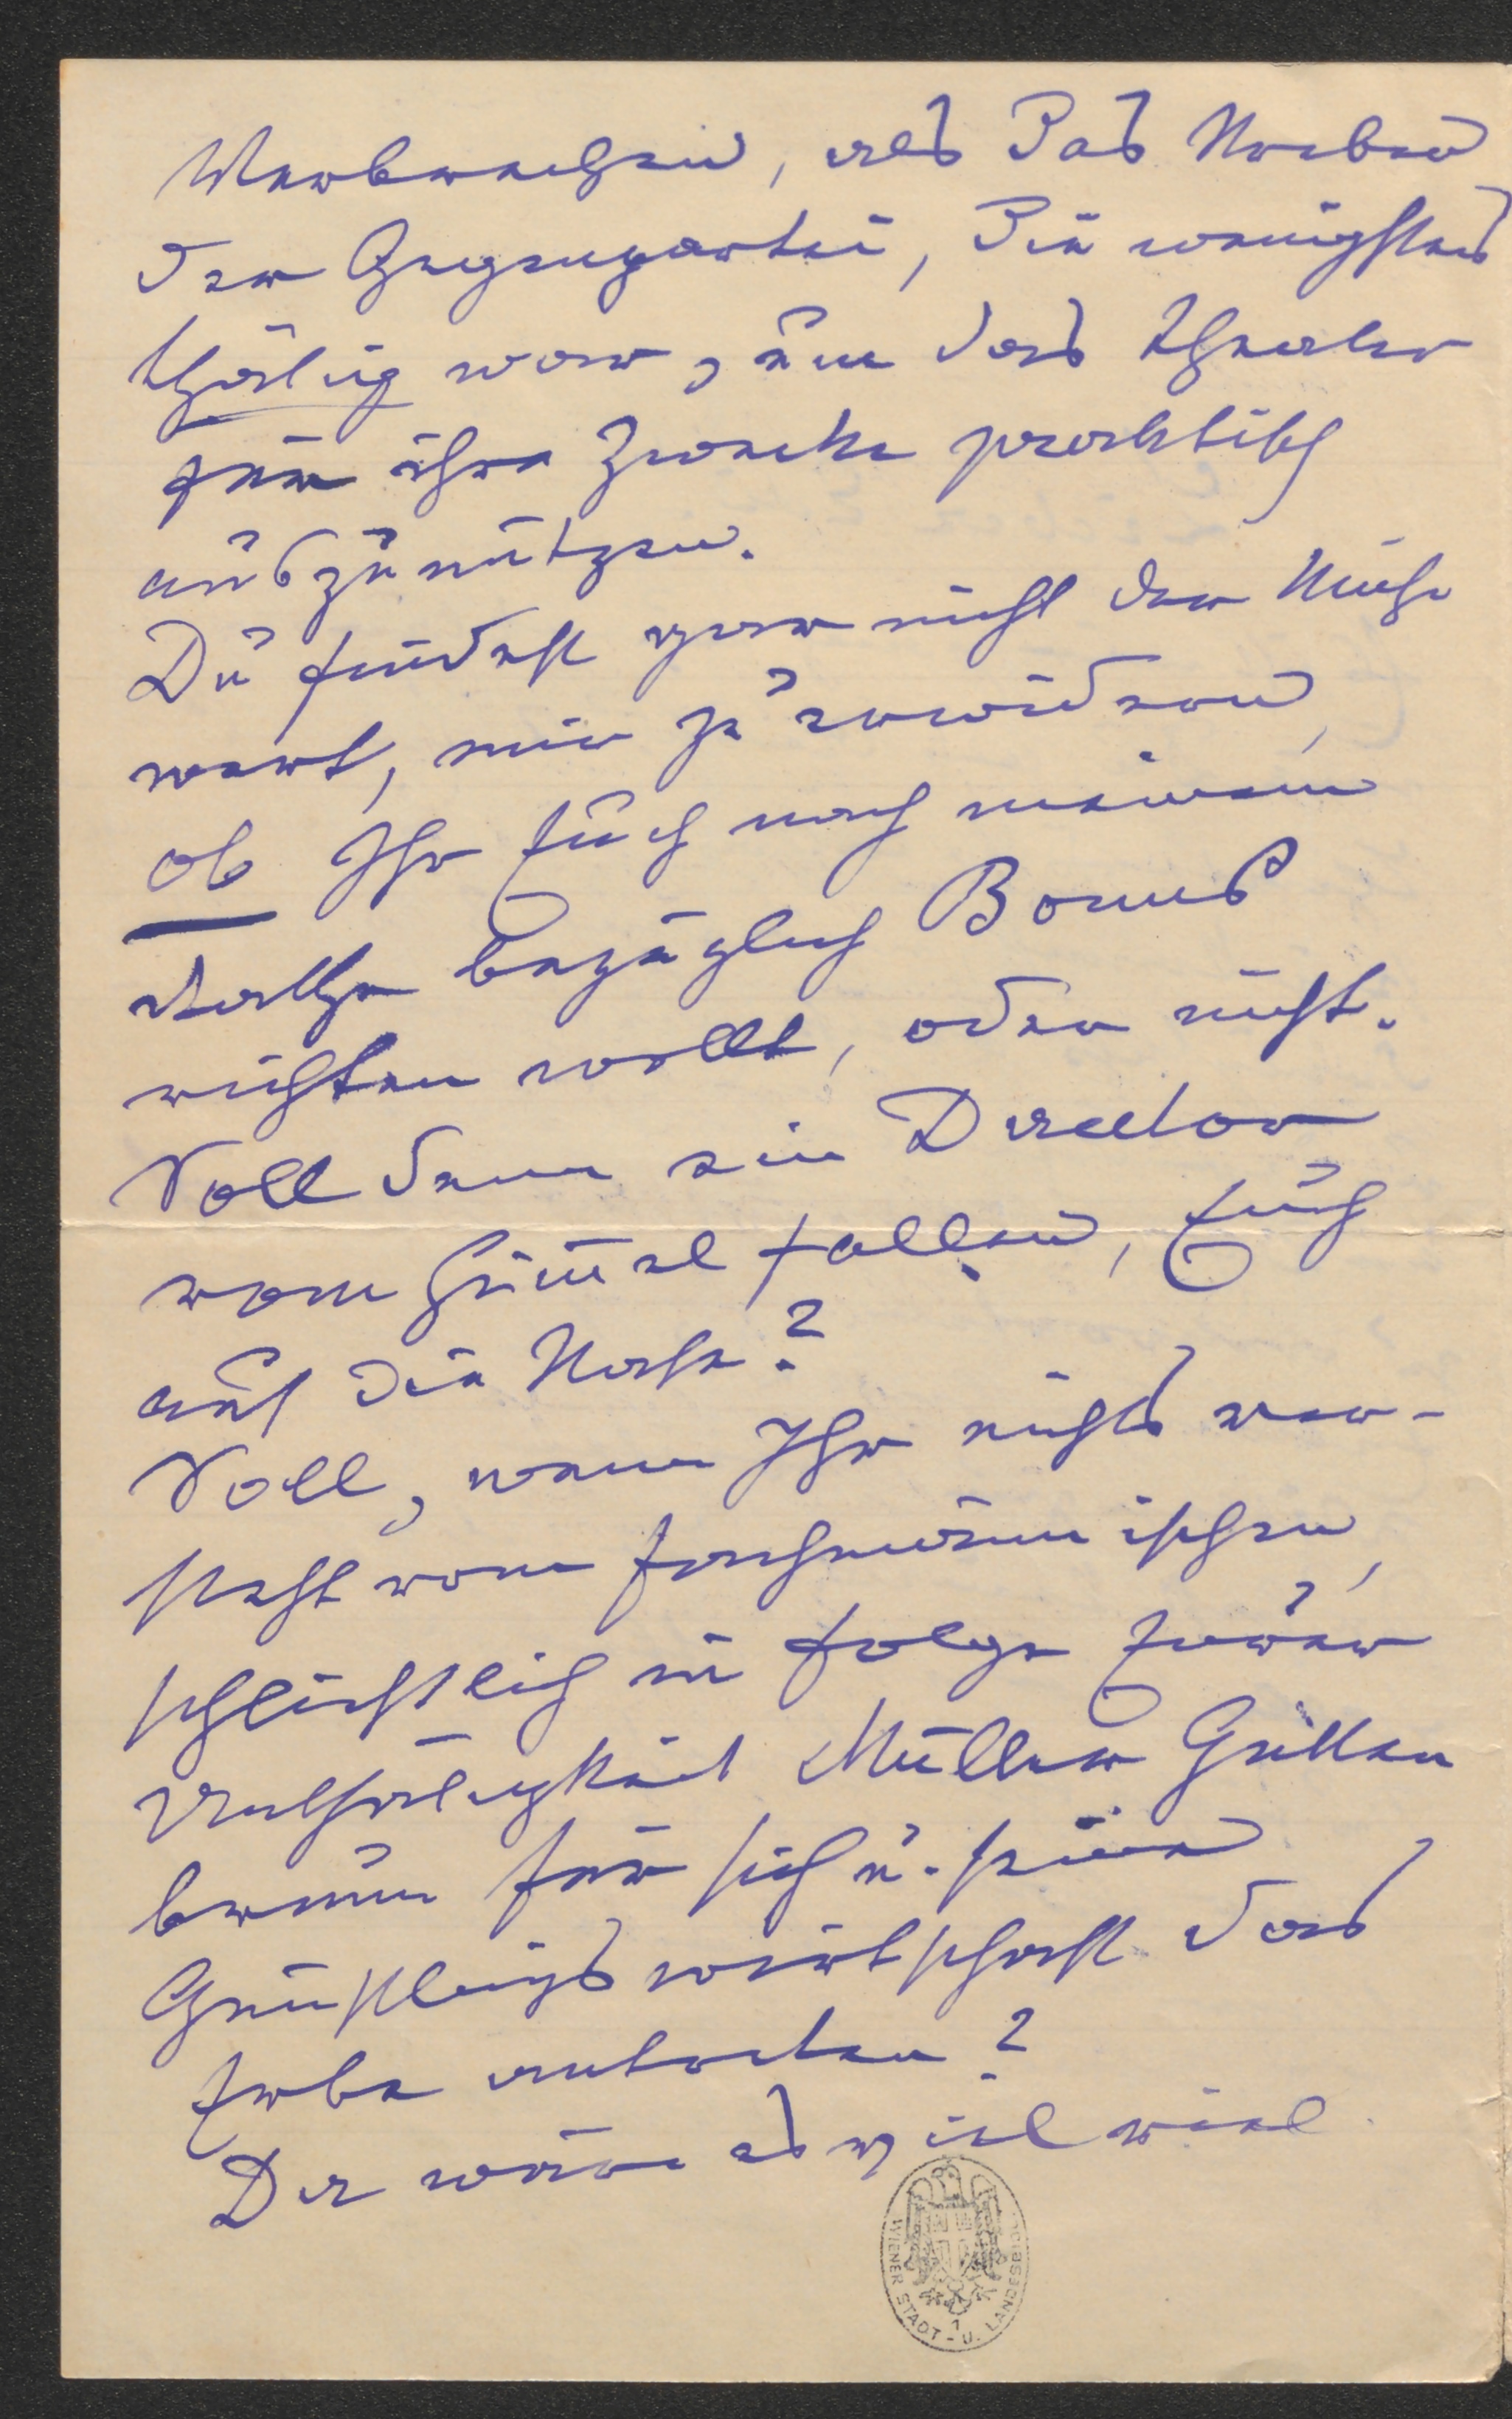 Verbrechen, als das Streben
der Gegenpartei, die wenigstens
thätig war, um das Theater
für ihre Zwecke praktisch
auszunützen.
Du findest gar nicht der Mühe
wert, mir zu erwidern,
ob Ihr Euch nach meinem
Rathe bezüglich Bonus
richten wollt, oder nicht.
Soll denn ein Director
vom Himmel fallen, Euch
auf die Nase?
Soll, wenn Ihr nichts ver-
steht vom fachmännischen,
schließlich in folge Eurer
Unthätigkeit Müller Gutten
brunn für sich u. seine
Günstlingswirtschaft das
Erbe antreten?
Da wäre es viel
WIENER STADT- U. LANDESBIBL